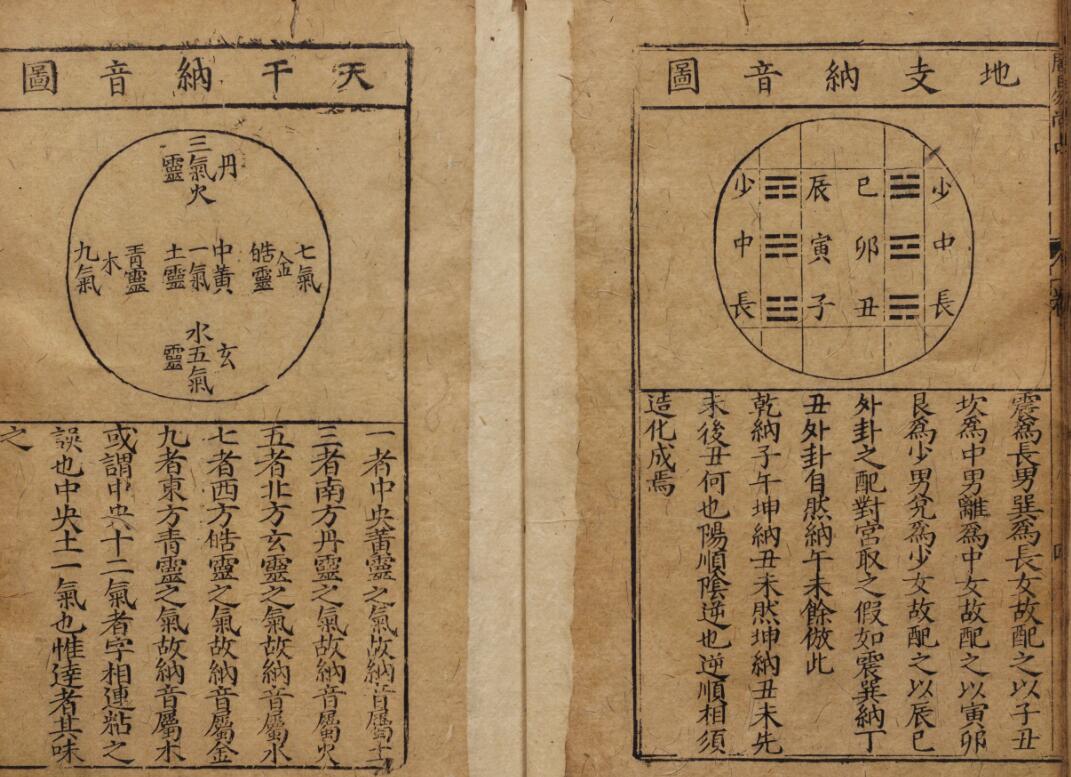 地支納音圖
少中長
巳卯丑
辰寅子
少中長
震爲長男巽爲長女故配之以子丑
坎爲中男離爲中女故配之以寅卯
艮爲少男兌爲少女故配之以辰巳
外卦之配對宮取之假如震巽納丁
丑外卦自然納午未餘倣此
乾納子午坤納丑未然坤納丑未先
未後丑何也陽順陰逆也逆順相須
造化成焉
天干納音圖
丹
三氣火
靈
七氣
金
皓靈
中黃
一氣
土靈
青靈
木
九氣
玄
水五氣
靈
一者中央黃靈之氣故納音屬土
三者南方丹靈之氣故納音屬火
五者北方玄靈之氣故納音屬水
七者西方皓靈之氣故納音屬金
九者東方青靈之氣故納音屬木
或謂中央十二氣者字相連粘之
誤也中央土一氣也惟達者其味
之